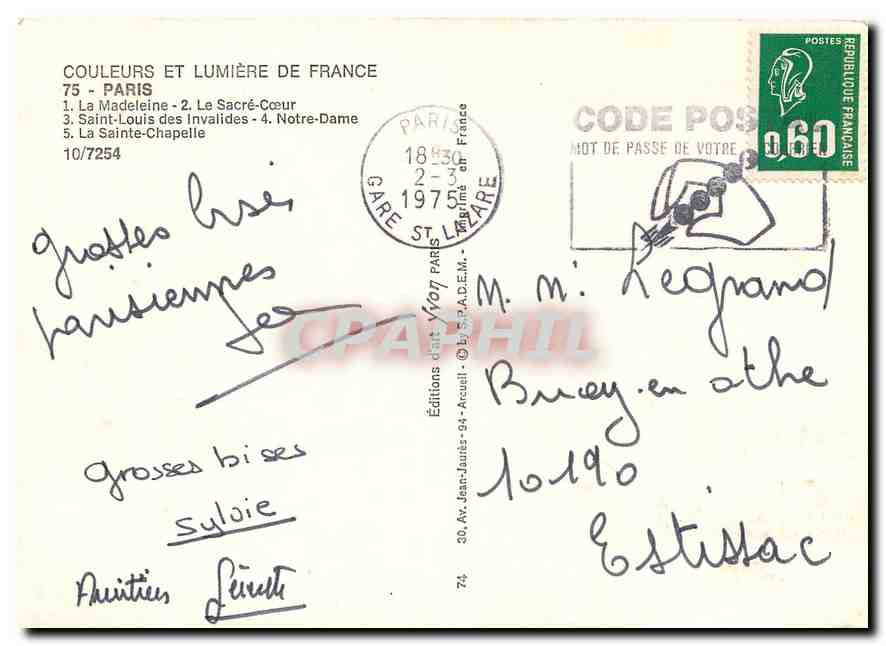 COULEURS ET LUMIÈRE DE FRANCE
75 - PARIS
1. La Madeleine - 2. Le Sacré-Cœur
3. Saint-Louis des Invalides - 4. Notre-Dame
5. La Sainte-Chapelle
10/7254
grosses bises
parisiennes
grosses bises
Sylvie
Amitiés
Éditions d'art Yvon PARIS
30, Av. Jean-Jaurès - 94 - Arcueil - © by S.P.A.D.E.M. - Imprimé en France
74
PARIS
18H30
2-3
1975
GARE ST LAZARE
CODE POS
MOT DE PASSE DE VOTRE COURRIER
POSTES
REPUBLIQUE FRANÇAISE
0,60
M. Mᵉ Legrand
Bucey en othe
10190
Estissac
CPAPHIL